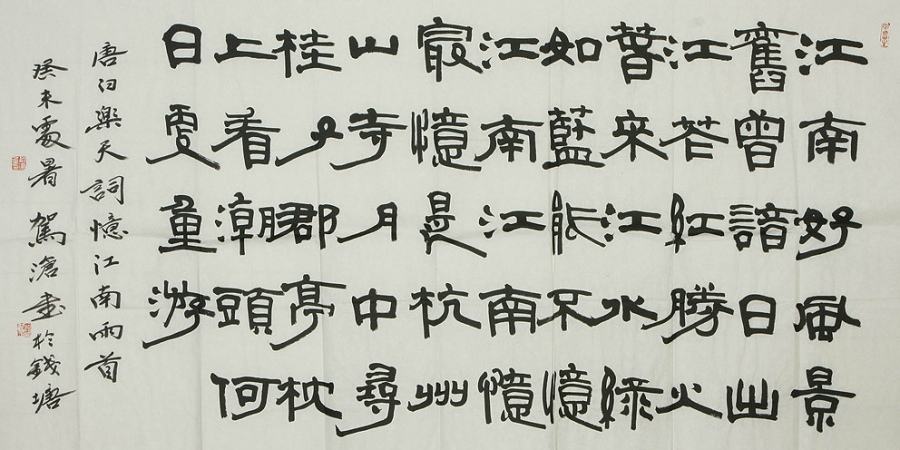 江南好風景
舊曾諳日出
江花紅勝火
春來江水綠
如藍能不憶
江南江南憶
最憶是杭州
山寺月中尋
桂子郡亭枕
上看潮頭何
日更重游
唐白樂天詞憶江南兩首
癸未處暑駕滄書於錢塘